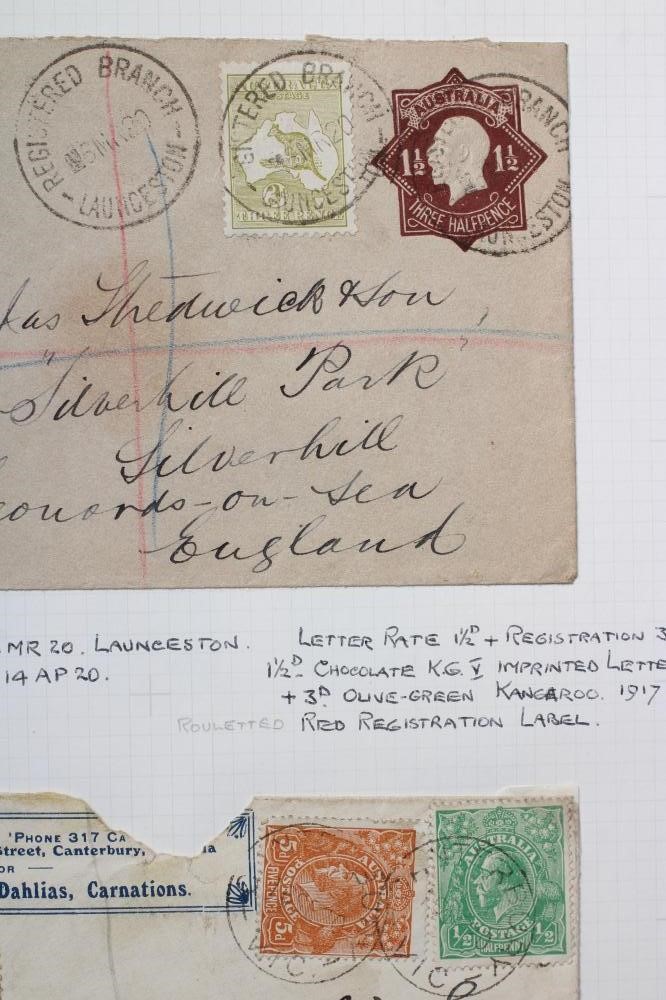 REGISTERED BRANCH
LAUNCESTON
POSTAGE
REGISTERED BRANCH
LAUNCESTON
AUSTRALIA
1½ 1½
THREE HALFPENCE
BRANCH
LAUNCESTON
Jas Shedwick & Son
"Silverhill Park"
Silverhill
eonards-on-Sea
England
MR 20. LAUNCESTON.
14 AP 20.
LETTER RATE 1½D + REGISTRATION 3
1½D CHOCOLATE K.G. V IMPRINTED LETTE
+ 3D OLIVE-GREEN KANGAROO. 1917
ROULETTED RED REGISTRATION LABEL.
'PHONE 317 CA
Street, Canterbury,
OR
Dahlias, Carnations.
5d 5d
FIVE PENCE
POSTAGE
AUSTRALIA
AUSTRALIA
POSTAGE
½ HALFPENNY ½
VIC